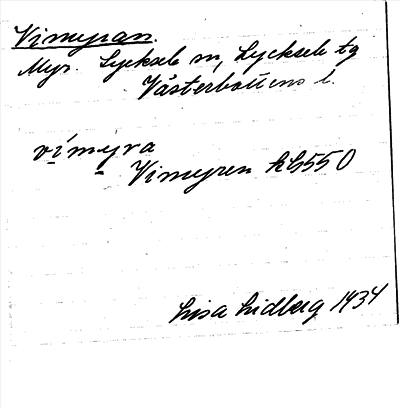 Vimyran.
Myr. Lycksele sn, Lycksele tg
Västerbottens l.
vímýra
Vimyren kb 550
Lisa Lidberg 1934